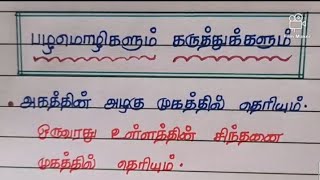 பழமொழிகளும் கருத்துக்களும்
• அகத்தின் அழகு முகத்தில் தெரியும்.
ஒருவரது உள்ளத்தின் சிந்தனை
முகத்தில் தெரியும்.